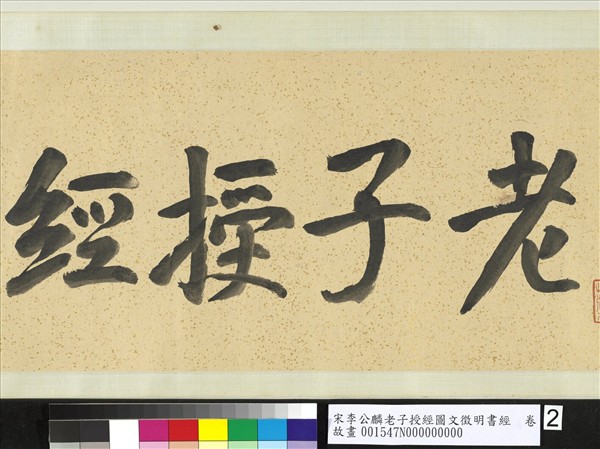 老子授經
宋李公麟老子授經圖文徵明書經 卷
故畫001547N000000000
2